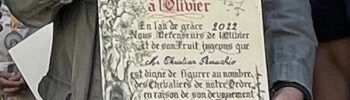 à l'Olivier
En l'an de grâce 2022
Nous Défenseurs de l'Olivier
et de son Fruit jugeons que
Christian
est digne de figurer au nombre
des Chevaliers de notre Ordre,
en raison de son dévouement